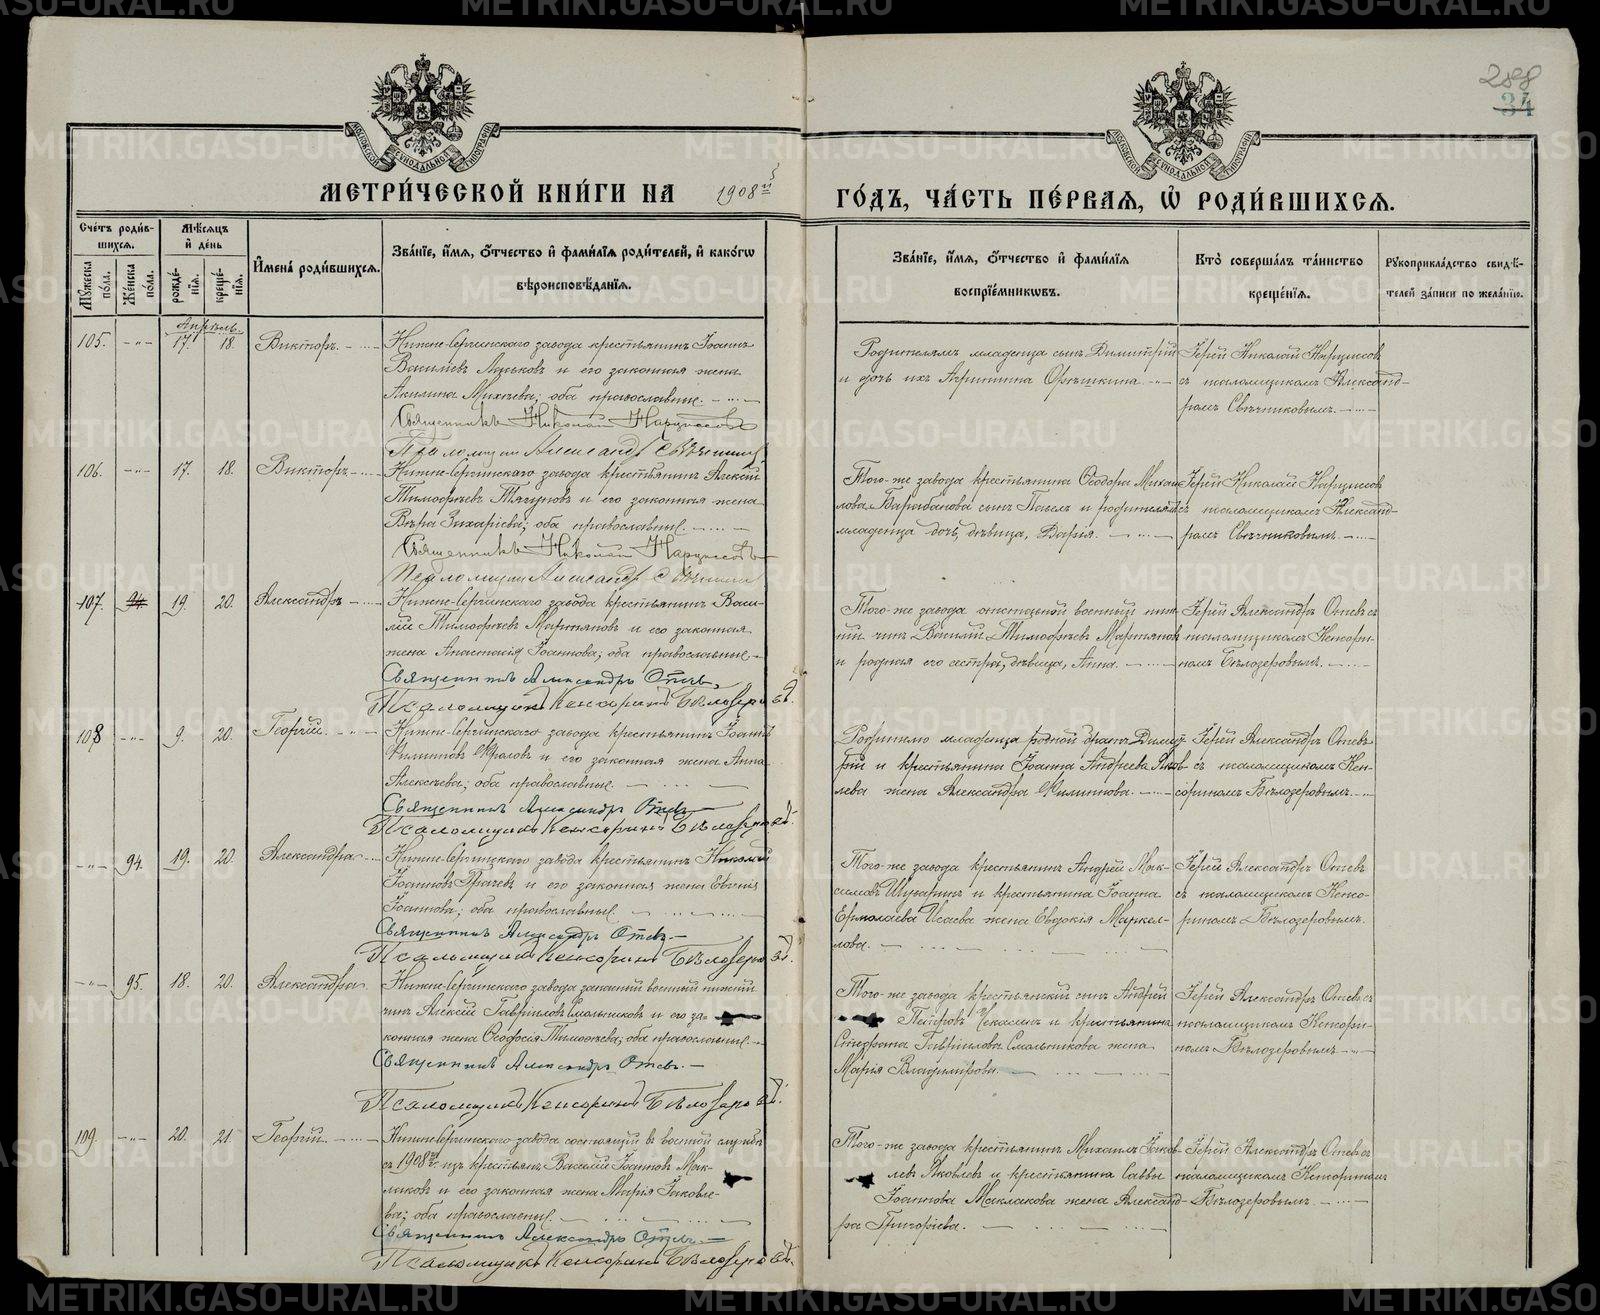 288
34
МЕТРИ́ЧЕСКОЙ КНИ́ГИ НА 1908й
ГО́ДЪ, ЧА́СТЬ ПЕ́РВАЯ, Ѡ҆ РОДИ́ВШИХСЯ.
Сче́тъ роди́в-
шихся.
Му́жеска по́ла.
Же́нска по́ла.
Мѣ́сяцъ и҆ де́нь
рожде́-
нїя.
креще́-
нїя.
И҆мена̀ роди́вшихся.
Зва́нїе, и҆́мя, ѻ҆́тчество и҆ фами́лїя роди́телей, и҆ како́гѡ
вѣроисповѣ́данїя.
Зва́нїе, и҆́мя, ѻ҆́тчество и҆ фами́лїя
воспрїе́мникѡвъ.
Кто̀ соверша́лъ та́инство
креще́нїя.
Рꙋкоприкла́дство свидѣ́-
телей за́писи по жела́нїю.
Апрѣль.
105. -"- 17. 18. Викторъ.
Нижне-Сергинскаго завода крестьянинъ Іоаннъ
Васильевъ и его законная жена
Акилина Михеева; оба православные.
Священникъ Николай Нарциссовъ
Псаломщикъ Александръ Свѣчниковъ
Родителямъ младенца сынъ Димитрій
и дочь ихъ Агриппина
Іерей Николай Нарциссовъ
съ псаломщикомъ Александ-
ромъ Свѣчниковымъ.
106. -"- 17. 18. Викторъ.
Нижне-Сергинскаго завода крестьянинъ Алексій
Тимофеевъ Тягуновъ и его законная жена
Вѣра Захаріева; оба православные.
Священникъ Николай Нарциссовъ
Псаломщикъ Александръ Свѣчниковъ
Того-же завода крестьянина Ѳеодора Михаи-
лова Барабанова сынъ Павелъ и родителямъ
младенца дочь, дѣвица, Дарія.
Іерей Николай Нарциссовъ
съ псаломщикомъ Александ-
ромъ Свѣчниковымъ.
107. 94. 19. 20. Александръ
Нижне-Сергинскаго завода крестьянинъ Васи-
лій Тимофеевъ Мартьяновъ и его законная
жена Анастасія Іоаннова; оба православные
Священникъ Александръ Отевъ
Псаломщикъ Кенсоринъ Бѣлозеровъ.
Того-же завода отставной военный ниж-
ній чинъ Василій Тимофеевъ Мартьяновъ
и родная его сестра, дѣвица, Анна.
Іерей Александръ Отевъ съ
псаломщикомъ Кенсори-
номъ Бѣлозеровымъ.
108 -"- 9. 20. Георгій.
Нижне-Сергинскаго завода крестьянинъ Іоаннъ
Филипповъ Фроловъ и его законная жена Анна
Алексѣева; оба православные.
Священникъ Александръ Отевъ
Псаломщикъ Кенсоринъ Бѣлозеровъ.
Родителю младенца родной братъ Дими-
трій и крестьянина Іоанна Андреева Яков-
лева жена Александра Филиппова.
Іерей Александръ Отевъ
съ псаломщикомъ Кен-
сориномъ Бѣлозеровымъ.
-"- 94. 19. 20. Александра
Нижне-Сергинскаго завода крестьянинъ Николай
Іоанновъ Грачевъ и его законная жена Евгенія
Іоаннова; оба православные.
Священникъ Александръ Отевъ
Псаломщикъ Кенсоринъ Бѣлозеровъ.
Того-же завода крестьянинъ Андрей Мак-
симовъ Шугаринъ и крестьянина Іоанна
Ермолаева Исаева жена Евдокія Маркел-
лова.
Іерей Александръ Отевъ
съ псаломщикомъ Кенсо-
риномъ Бѣлозеровымъ.
-"- 95. 18. 20. Александра
Нижне-Сергинскаго завода запасный военный нижній
чинъ Алексій Гавриловъ Смольниковъ и его за-
конная жена Ѳеодосія Тимофеева; оба православные.
Священникъ Александръ Отевъ.
Псаломщикъ Кенсоринъ Бѣлозеровъ.
Того-же завода крестьянскій сынъ Андрей
Петровъ Чекасинъ и крестьянина
Стефана Гаврилова Смольникова жена
Марія Владимірова.
Іерей Александръ Отевъ съ
псаломщикомъ Кенсори-
номъ Бѣлозеровымъ
109. -"- 20. 21. Георгій.
Нижне-Сергинскаго завода состоящій в военной службѣ
съ 1908 г. изъ крестьянъ Василій Іоанновъ Мак-
лаковъ и его законная жена Марія Іаковле-
ва; оба православные.
Священникъ Александръ Отевъ.
Псаломщикъ Кенсоринъ Бѣлозеровъ.
Того-же завода крестьянинъ Михаилъ Іаков-
левъ Яковлевъ и крестьянина Саввы
Іоаннова Маклакова жена Александ-
ра Григорьева.
Іерей Александръ Отевъ съ
псаломщикомъ Кенсориномъ
Бѣлозеровымъ.
METRIKI.GASO-URAL.RU